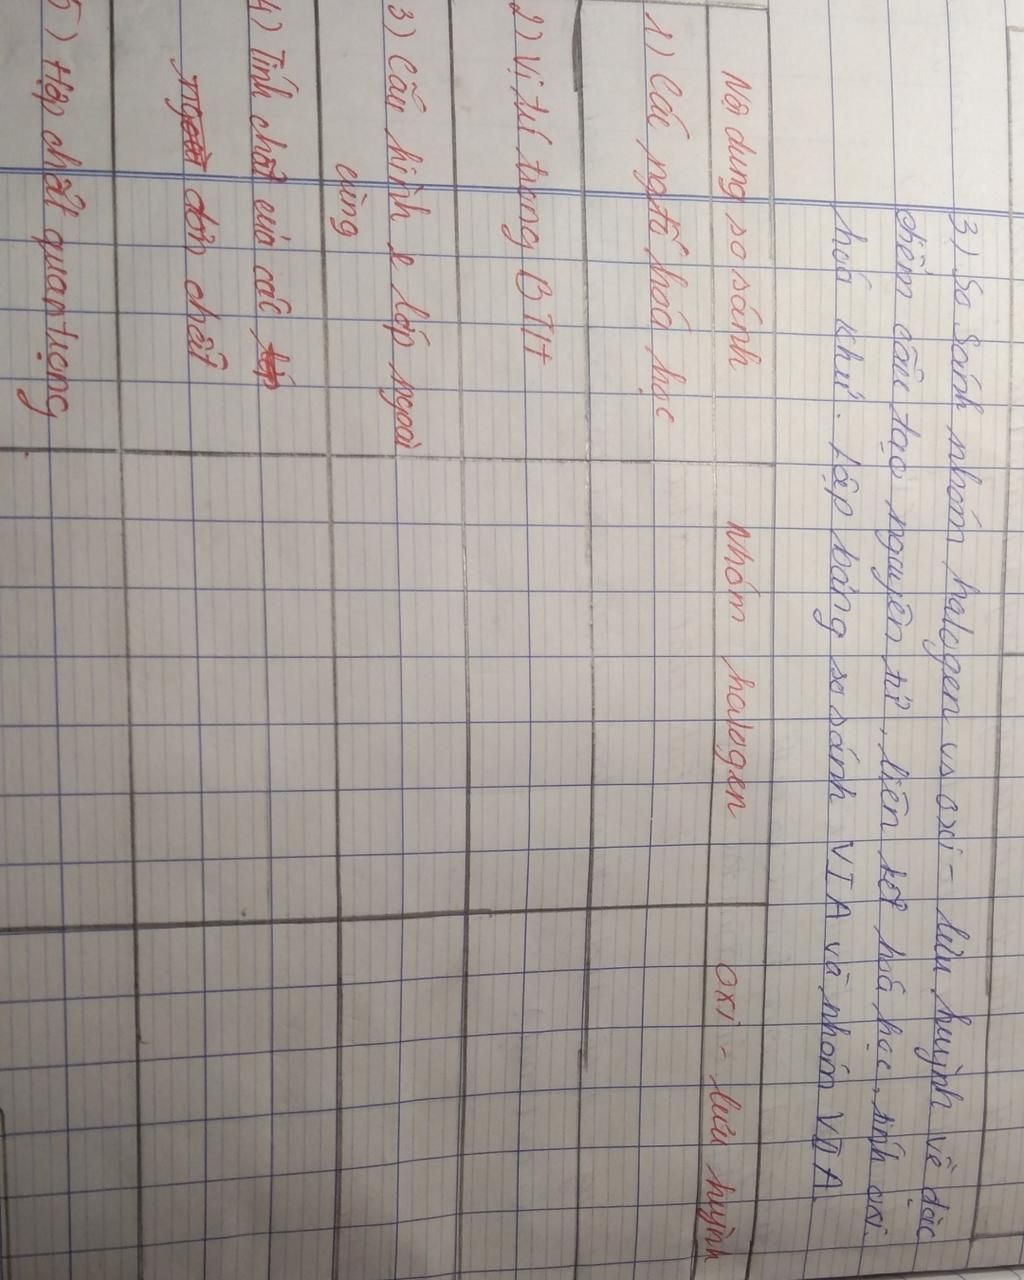 3) So sánh nhóm halogen vs oxi - lưu huỳnh về đặc
điểm cấu tạo nguyên tử, liên kết hoá học, tính oxi
hoá khử. Lập bảng so sánh VIA và nhóm VIIA.
Nội dung so sánh nhóm halogen oxi - lưu huỳnh
1) Các ngtố hoá học
2) Vị trí trong BTH
3) Cấu hình e lớp ngoài
cùng
4) Tính chất của các
đơn chất
5) Hợp chất quan trọng